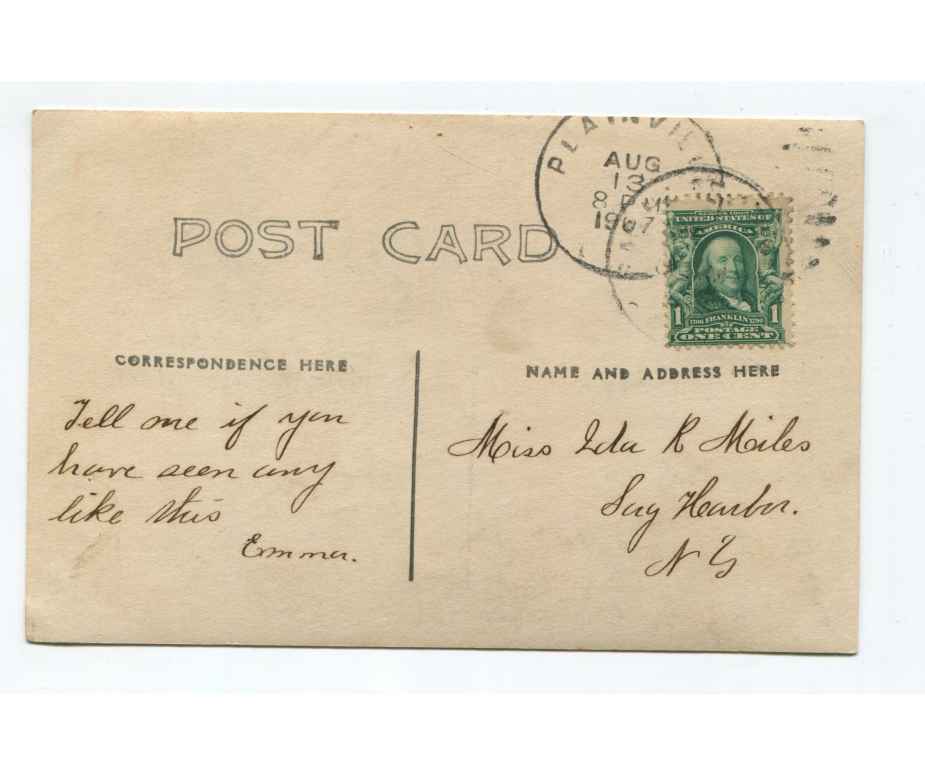 PLAINVIL
AUG
13
8 P M
1907
POST CARD
SERIES 1902
UNITED STATES OF
AMERICA
1 1706 FRANKLIN 1790 1
POSTAGE
ONE CENT
CORRESPONDENCE HERE
NAME AND ADDRESS HERE
Tell me if you
have seen any
like this
Emma.
Miss Ida R Miles
Sag Harbor.
N Y